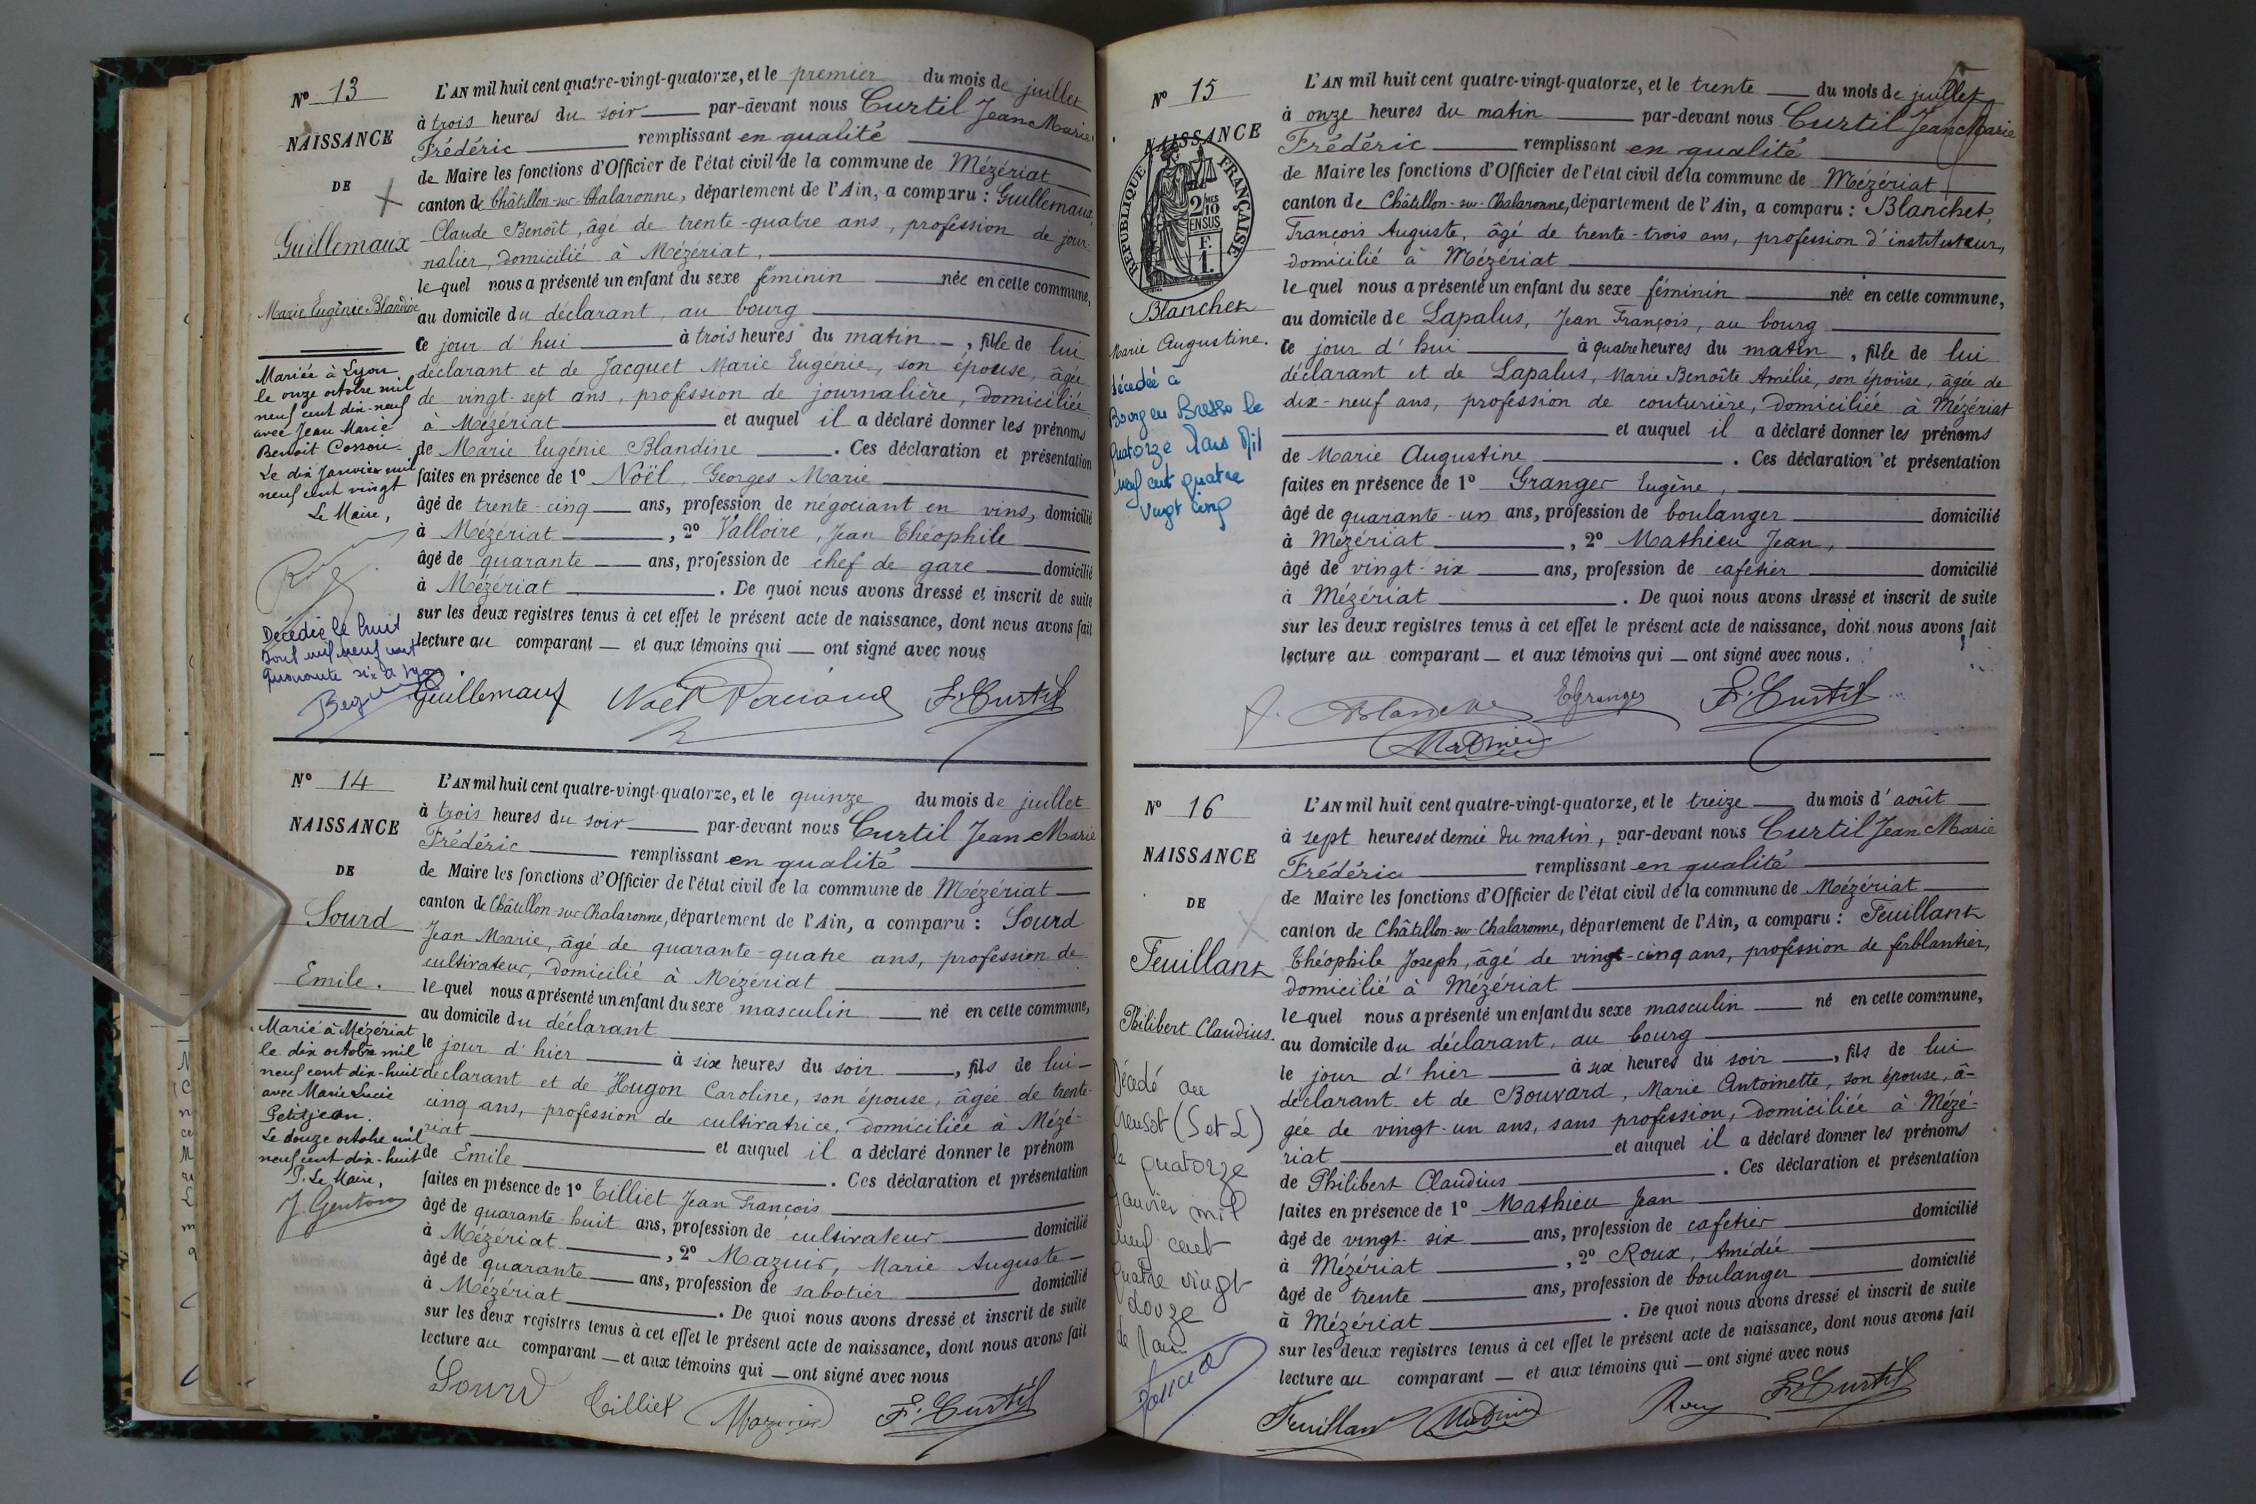 Nº 13
NAISSANCE
DE
Guillemaux
Marie Eugénie Blandine
Mariée à Lyon
le onze octobre mil
neuf cent dix-neuf
avec Jean Marie
Benoit
Le dix Janvier mil
neuf cent vingt
Le Maire,
Décédée le huit
Août mil neuf cent
quarante six à Lyon
L'AN mil huit cent quatre-vingt-quatorze, et le premier du mois de juillet
à trois heures du soir par-devant nous Curtil Jean Marie
Frédéric remplissant en qualité
de Maire les fonctions d'Officier de l'état civil de la commune de Mézériat
canton de Châtillon-sur-Chalaronne, département de l'Ain, a comparu : Guillemaux
Claude Benoît, âgé de trente-quatre ans, profession de jour-
nalier, domicilié à Mézériat,
lequel nous a présenté un enfant du sexe féminin née en cette commune,
au domicile du déclarant, au bourg
ce jour d'hui à trois heures du matin, fille de lui
déclarant et de Jacquet Marie Eugénie, son épouse, âgée
de vingt-sept ans, profession de journalière, domiciliée
à Mézériat et auquel il a déclaré donner les prénoms
de Marie Eugénie Blandine . Ces déclaration et présentation
faites en présence de 1º Noël, Georges Marie
âgé de trente-cinq ans, profession de négociant en vins, domicilié
à Mézériat, 2º Valloire, Jean Théophile
âgé de quarante ans, profession de chef de gare domicilié
à Mézériat . De quoi nous avons dressé et inscrit de suite
sur les deux registres tenus à cet effet le présent acte de naissance, dont nous avons fait
lecture au comparant et aux témoins qui ont signé avec nous
Guillemaux Noël F. Curtil
Nº 14
NAISSANCE
DE
Sourd
Emile.
Marié à Mézériat
le dix octobre mil
neuf cent dix-huit
avec Marie Lucie
Petitjean.
Le douze octobre mil
neuf cent dix-huit
P. Le Maire,
J. Genton
L'AN mil huit cent quatre-vingt-quatorze, et le quinze du mois de juillet
à trois heures du soir par-devant nous Curtil Jean Marie
Frédéric remplissant en qualité
de Maire les fonctions d'Officier de l'état civil de la commune de Mézériat
canton de Châtillon-sur-Chalaronne, département de l'Ain, a comparu : Sourd
Jean Marie, âgé de quarante-quatre ans, profession de
cultivateur, domicilié à Mézériat
lequel nous a présenté un enfant du sexe masculin né en cette commune,
au domicile du déclarant
le jour d'hier à six heures du soir, fils de lui
déclarant et de Hugon Caroline, son épouse, âgée de trente-
cinq ans, profession de cultivatrice, domiciliée à Mézé-
riat et auquel il a déclaré donner le prénom
de Emile . Ces déclaration et présentation
faites en présence de 1º Tilliet Jean François
âgé de quarante-huit ans, profession de cultivateur domicilié
à Mézériat, 2º Mazuir, Marie Auguste
âgé de quarante ans, profession de sabotier domicilié
à Mézériat . De quoi nous avons dressé et inscrit de suite
sur les deux registres tenus à cet effet le présent acte de naissance, dont nous avons fait
lecture au comparant et aux témoins qui ont signé avec nous
Sourd Tilliet Mazuir F. Curtil
Nº 15
NAISSANCE
RÉPUBLIQUE FRANÇAISE
2/10 EN SUS
F.
1.
Blanchet
Marie Augustine.
décédée à
Bourg en Bresse le
quatorze Mars Mil
neuf cent quatre
vingt cinq
L'AN mil huit cent quatre-vingt-quatorze, et le trente du mois de juillet
à onze heures du matin par-devant nous Curtil Jean Marie
Frédéric remplissant en qualité
de Maire les fonctions d'Officier de l'état civil de la commune de Mézériat
canton de Châtillon-sur-Chalaronne, département de l'Ain, a comparu : Blanchet,
François Auguste, âgé de trente-trois ans, profession d'instituteur,
domicilié à Mézériat
lequel nous a présenté un enfant du sexe féminin née en cette commune,
au domicile de Lapalus, Jean François, au bourg
ce jour d'hui à quatre heures du matin, fille de lui
déclarant et de Lapalus, Marie Benoîte Amélie, son épouse, âgée de
dix-neuf ans, profession de couturière, domiciliée à Mézériat
et auquel il a déclaré donner les prénoms
de Marie Augustine . Ces déclaration et présentation
faites en présence de 1º Granger Eugène,
âgé de quarante-un ans, profession de boulanger domicilié
à Mézériat, 2º Mathieu Jean,
âgé de vingt-six ans, profession de cafetier domicilié
à Mézériat . De quoi nous avons dressé et inscrit de suite
sur les deux registres tenus à cet effet le présent acte de naissance, dont nous avons fait
lecture au comparant et aux témoins qui ont signé avec nous.
Blanchet E Granger F. Curtil
Mathieu
Nº 16
NAISSANCE
DE
Feuillant
Philibert Claudius.
Décédé au
Creusot (S et L)
le quatorze
Janvier mil
neuf cent
quatre vingt
douze
L'AN mil huit cent quatre-vingt-quatorze, et le treize du mois d'août
à sept heures et demie du matin, par-devant nous Curtil Jean Marie
Frédéric remplissant en qualité
de Maire les fonctions d'Officier de l'état civil de la commune de Mézériat
canton de Châtillon-sur-Chalaronne, département de l'Ain, a comparu : Feuillant
Théophile Joseph, âgé de vingt-cinq ans, profession de ferblantier,
domicilié à Mézériat
lequel nous a présenté un enfant du sexe masculin né en cette commune,
au domicile du déclarant, au bourg
le jour d'hier à six heures du soir, fils de lui
déclarant et de Bouvard, Marie Antoinette, son épouse, â-
gée de vingt-un ans, sans profession, domiciliée à Mézé-
riat et auquel il a déclaré donner les prénoms
de Philibert Claudius . Ces déclaration et présentation
faites en présence de 1º Mathieu Jean
âgé de vingt-six ans, profession de cafetier domicilié
à Mézériat, 2º Roux, Amédée
âgé de trente ans, profession de boulanger domicilié
à Mézériat . De quoi nous avons dressé et inscrit de suite
sur les deux registres tenus à cet effet le présent acte de naissance, dont nous avons fait
lecture au comparant et aux témoins qui ont signé avec nous
Feuillant Mathieu Roux F. Curtil